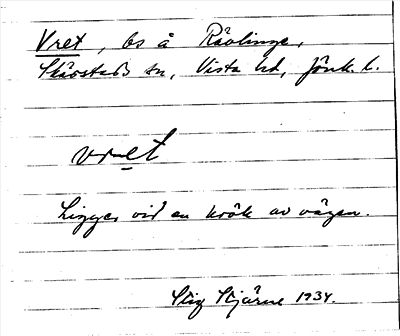 Vret, bs å Rävlinge,
Skärstads sn, Vista hd, Jönk. l.
vret
Ligger vid en krök av vägen.
Stig Stjärne 1934.